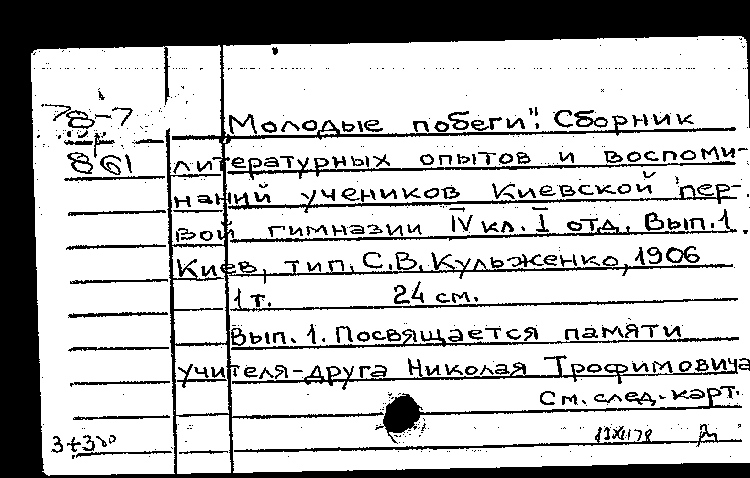 78-7
861
Молодые побеги". Сборник
литературных опытов и воспоми-
наний учеников Киевской пер-
вой гимназии IV кл. I отд. Вып.1.
Киев, тип. С.В. Кульженко, 1906
1 т. 24 см.
Вып. 1. Посвящается памяти
учителя-друга Николая Трофимовича
См. след. карт.